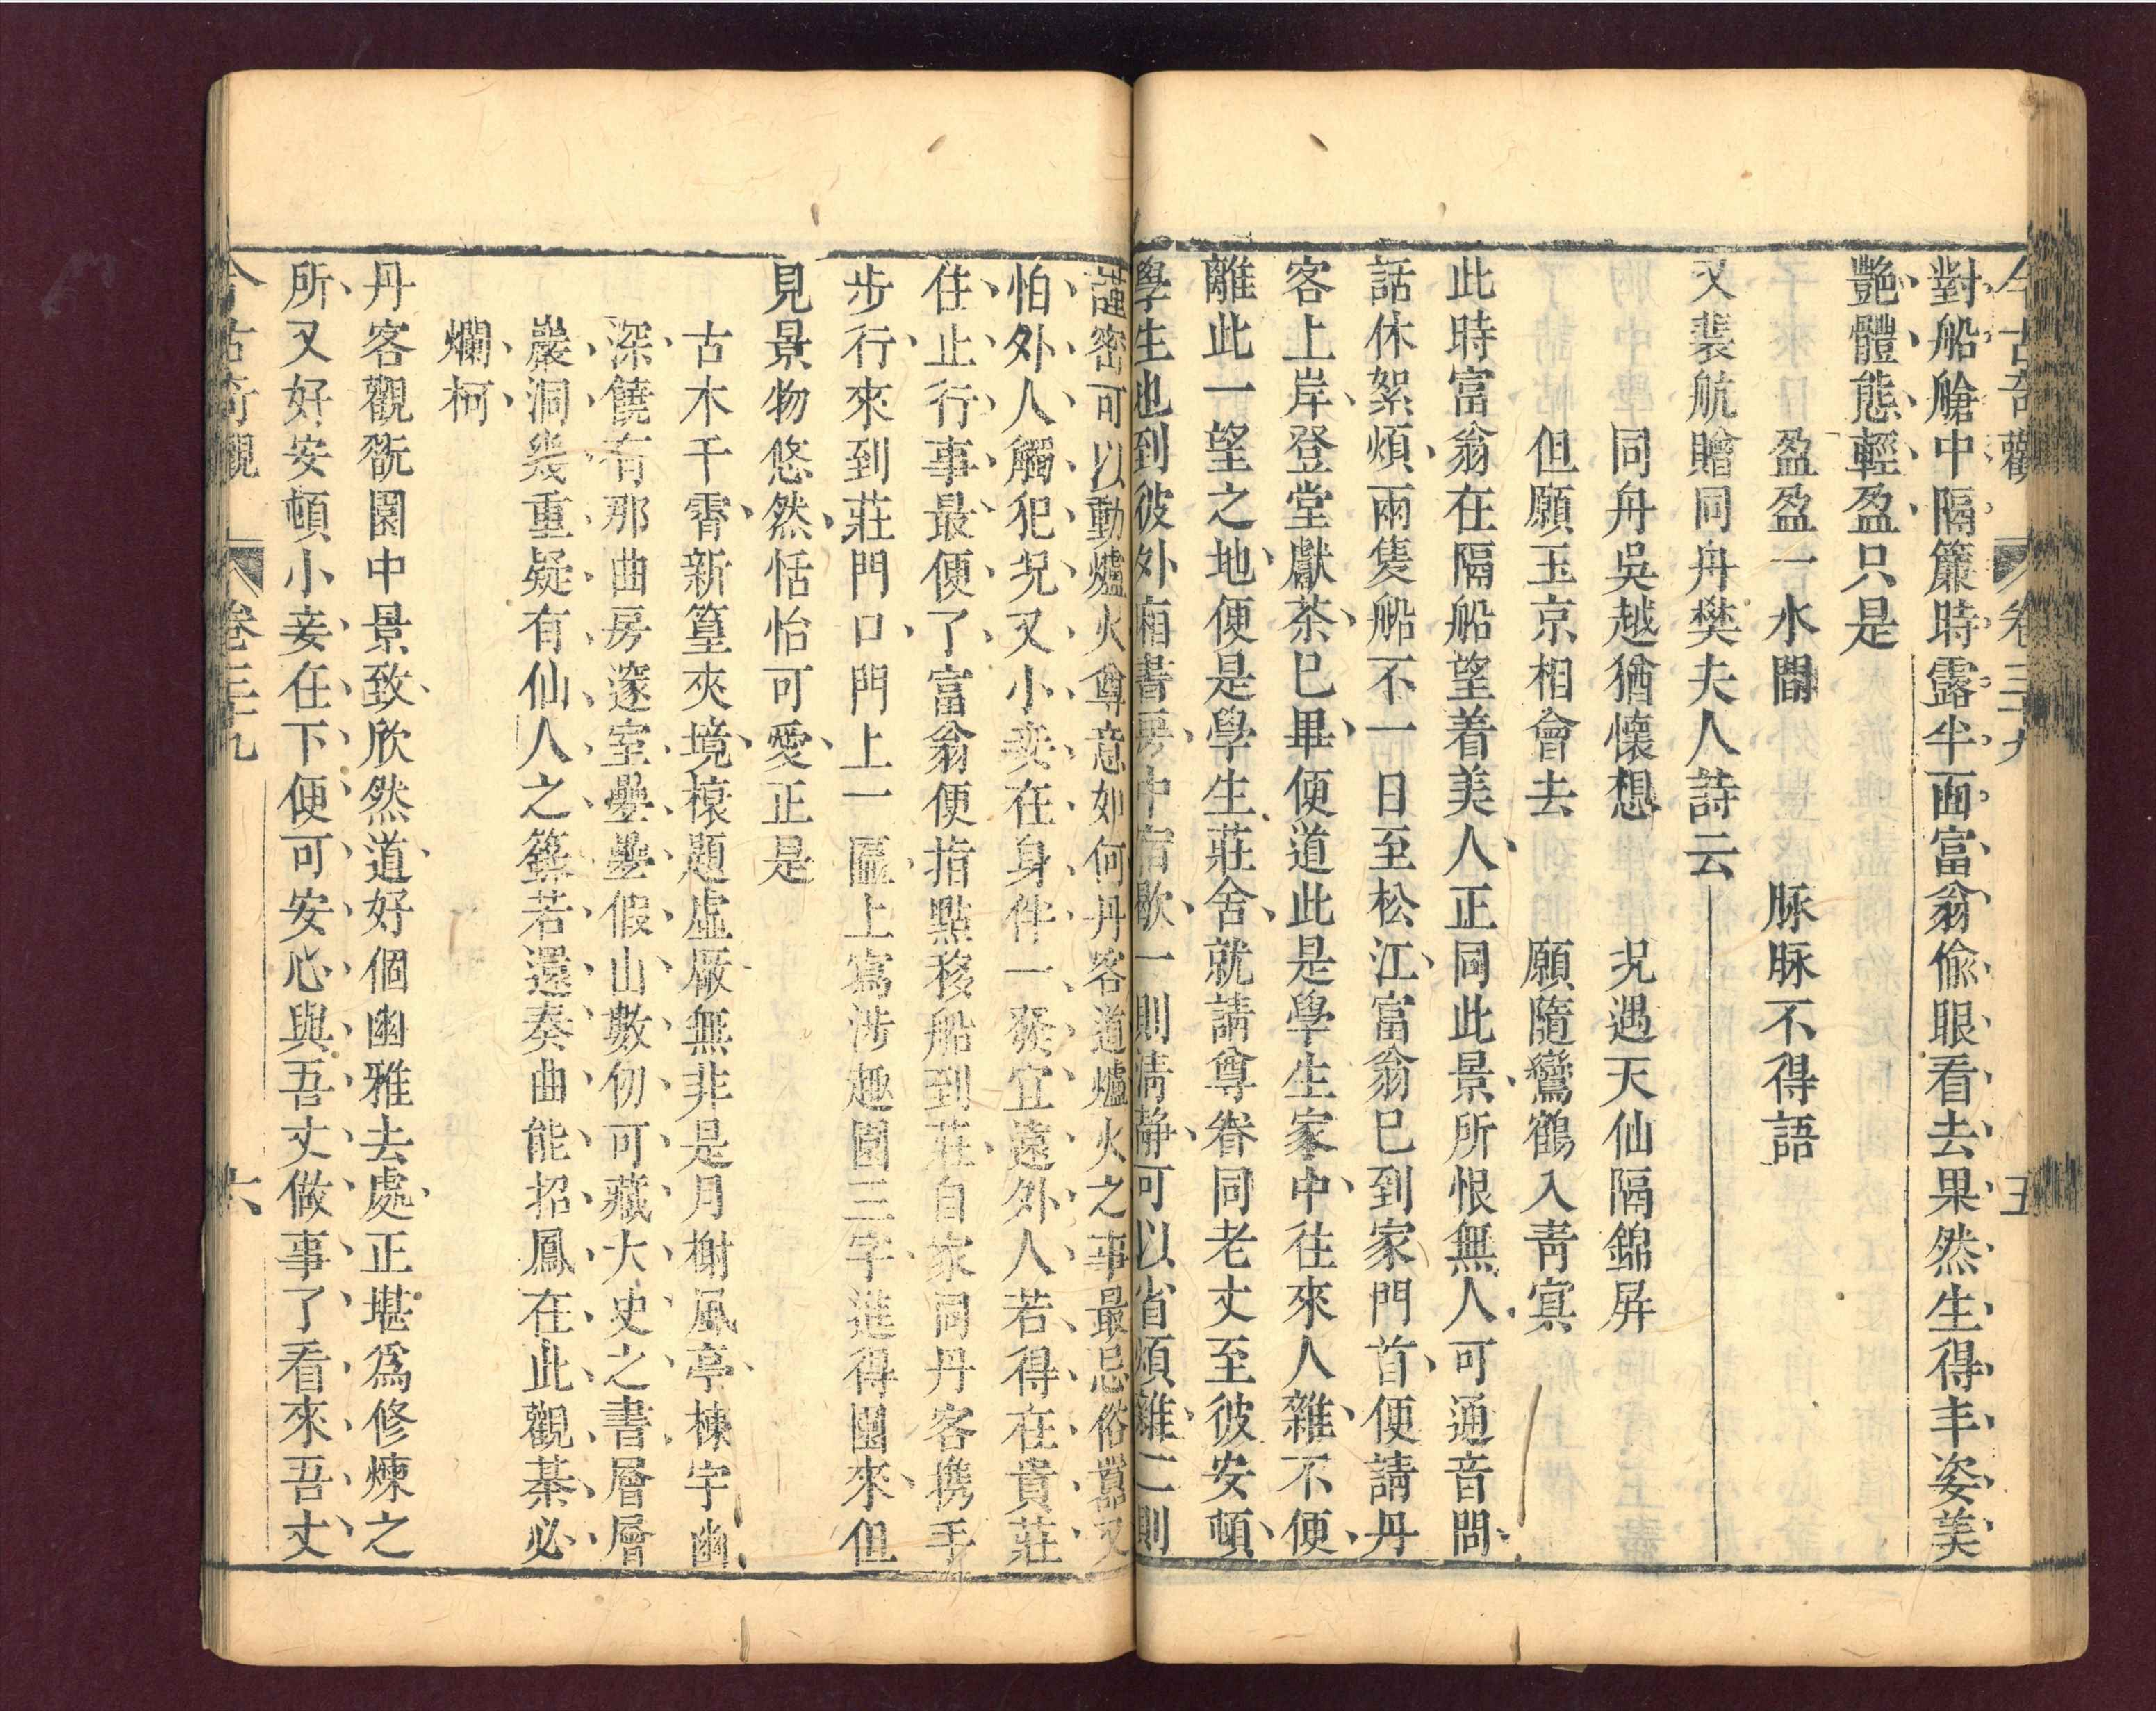 今古奇觀 卷三十九 五
對船艙中隔簾時露半面富翁偸眼看去果然生得丰姿美
艷體態輕盈只是
盈盈一水間 脉脉不得語
又裴航贈同舟樊夫人詩云
同舟吳越猶懷想 况遇天仙隔錦屏
但願玉京相會去 願隨鸞鶴入靑冥
此時富翁在隔船望着美人正同此景所恨無人可通音問
話休絮煩兩隻船不一日至松江富翁已到家門首便請丹
客上岸登堂獻茶已畢便道此是學生家中往來人雜不便
離此一望之地便是學生莊舍就請尊眷同老丈至彼安頓
學生也到彼外廂書房中宿歇一則淸静可以省煩雜二則
謹密可以動爐火尊意如何丹客道爐火之事最忌俗囂又
怕外人觸犯况又小妾在身伴一發宜遠外人若得在貴莊
住止行事最便了富翁便指點移船到莊自家同丹客携手
步行來到莊門口門上一匾上寫涉趣園三字進得園來但
見景物悠然恬怡可愛正是
古木千霄新篁夾境榱題虛厰無非是月榭風亭棟宇幽
深饒有那曲房邃室疊疊假山數仞可藏大史之書層層
巖洞幾重疑有仙人之籙若還奏曲能招鳳在此觀棊必
爛柯
丹客觀翫園中景致欣然道好個幽雅去處正堪爲修煉之
所又好安頓小妾在下便可安心與吾丈做事了看來吾丈
今古奇觀 卷三十九 六